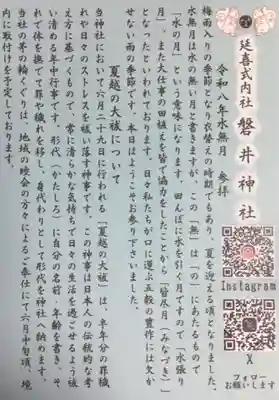 延喜式内社 磐井神社
Instagram
X
フォロー
お願いします
令和 年水無月 参拝
梅雨入りの季節となり衣替えの時期でもあり、夏を迎える頃となりました。
水無月は水の無い月と書きますが、この「無」は「の」にあたるもので
「水の月」という意味になります。田んぼに水を引く月ですので「水張り
月」、また大仕事の田植えを皆で協力をしたことから「皆月(みなづき)」
となったといわれております。日々私たちが口に運ぶ五穀の豊作には欠か
せない雨の季節です。本日はようこそお参り下さいました。
夏越の大祓について
当神社において六月二十九日に行われる「夏越の大祓」は、半年分の罪穢
れや日々のストレスを祓い落す神事です。この神事は日本人の伝統的な考
え方に基づくもので、常に清らかな気持ちで日々の生活を過ごせるよう祓
い清める年中行事です。形代(かたしろ)に自分の名前、年齢を書き、そ
れで体を撫でて罪や穢れを移し、身代わりとして形代を神社へ納めます。
当社の茅の輪くぐりは、地域の睦会の方々によるご奉仕にて六月中旬頃、境
内に取付けを予定しております。